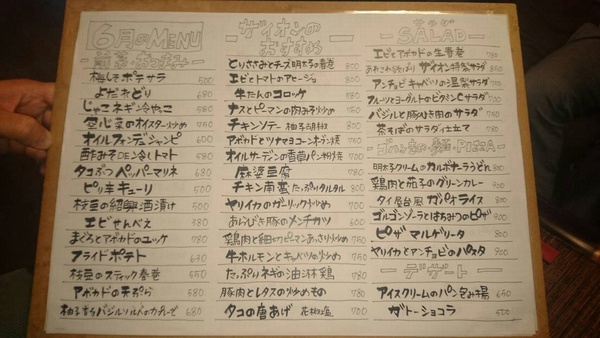 6月のMENU
梅しそポテサラ 500
よだれどり 680
じゃこネギ冷やっこ 580
空心菜のオイスター炒め 750
オイルフォンデュシャンピ 600
酢みそDEタコ&トマト 580
タコぶつペッパーマリネ 680
ピリ辛キューリ 500
枝豆の紹興酒漬け 500
エビせんべえ 380
まぐろとアボカドのユッケ 780
フライドポテト 630
枝豆のスティック春巻 550
アボカドの天ぷら 580
680
ザイオンのおすすめ
とりささみとチーズ明太子の春巻 800
エビとトマトのアヒージョ 800
牛たんのコロッケ 780
ナスとピーマンの肉みそ炒め 750
チキンソテー 柚子胡椒 800
アボカドとツナマヨコーンオーブン焼 700
オイルサーデンの香草パン粉焼 700
麻婆豆腐 780
チキン南蛮 たっぷりタルタル 800
ヤリイカのガーリック炒め 700
あらびき豚のメンチカツ 600
鶏肉と細切ピーマンあっさり炒め 750
牛ホルモンとキャベツの炒め 750
たっぷりネギの油淋鶏 780
豚肉とレタスの炒めもの 780
タコの唐あげ 花椒塩 700
サラダ
SALAD
エビとアボカドの生春巻 780
ザイオン特製サラダ 850
アンチョビキャベツの温製サラダ 700
フルーツとヨーグルトのビタミンCサラダ 700
バジルと豚ひき肉のサラダ 780
茶そばのサラダ仕立て 780
PIZZA
明太クリームのカルボナーラうどん 850
鶏肉と茄子のグリーンカレー 900
タイ屋台風 ガパオライス 850
ゴルゴンゾーラとはちみつのピザ 900
ピザ マルゲリータ 800
ヤリイカとアンチョビのパスタ 900
デザート
アイスクリームのパン包み揚 650
ガトーショコラ 500